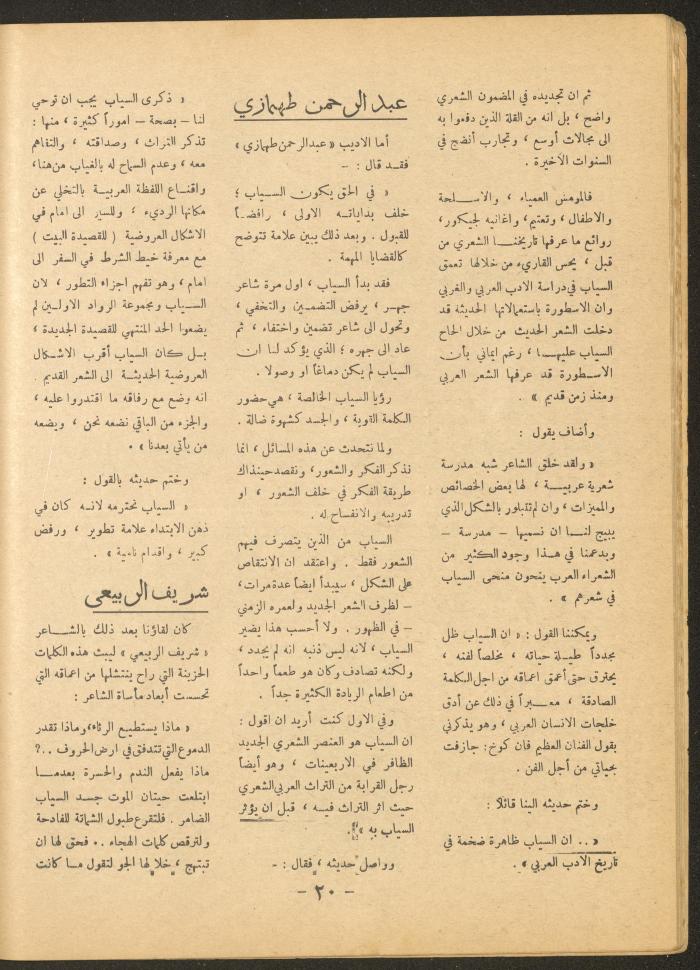 ثم ان تجديده في المضمون الشعري
واضح ، بل انه من القلة الذين دفعوا به
الى مجالات أوسع ، وتجارب أنضج في
السنوات الاخيرة .
فالمومس العمياء ، والاسلحة
والاطفال ، وتعتيم ، واغانيه لجيكور،
روائع ما عرفها تاريخنا الشعري من
قبل ، يحس القاريء من خلالها تعمق
السياب في دراسة الادب العربي والغربي
وان الاسطورة باستعمالاتها الحديثة قد
دخلت الشعر الحديث من خلال الحاح
السياب عليها ، رغم ايماني بأن
الاسطورة قد عرفها الشعر العربي
ومنذ زمن قديم » .
وأضاف يقول :
« ولقد خلق الشاعر شبه مدرسة
شعرية عربية ، لها بعض الخصائص
والمميزات ، وان لم تتبلور بالشكل الذي
يبيح لنا ان نسميها – مدرسة –
ويدعمنا في هذا وجود الكثير من
الشعراء العرب ينحون منحى السياب
في شعرهم » .
ويمكننا القول : « ان السياب ظل
مجدداً طيلة حياته ، مخلصاً لفنه ،
يحترق حتى أعمق اعماقه من اجل الكلمة
الصادقة ، معبراً في ذلك عن أدق
خلجات الانسان العربي ، وهو يذكرني
بقول الفنان العظيم فان كوخ: جازفت
بحياتي من أجل الفن .
وختم حديثه الينا قائلاً :
« .. ان السياب ظاهرة ضخمة في
تاريخ الادب العربي » .
عبد الرحمن طهمازي
أما الاديب « عبدالرحمن طهمازي »
فقد قال : –
« في الحق يكون السياب ؛
خلف بداياته الاولى ، رافضاً
للقبول . وبعد ذلك يبين علامة تتوضح
كالقضايا المهمة .
فقد بدأ السياب ، اول مرة شاعر
جهر ، يرفض التضمين والتخفي ،
وتحول الى شاعر تضمين واختفاء ، ثم
عاد الى جهره ؛ الذي يؤكد لنا ان
السياب لم يكن دماغاً او وصولا .
رؤيا السياب الخالصة ، هي حضور
الكلمة القوية ، والجسد كشهوة ضالة .
ولما نتحدث عن هذه المسائل ، انما
نذكر الفكر والشعور ، ونقصد حينذاك
طريقة الفكر في خلف الشعور ، او
تدريبه والانفساح له .
السياب من الذين يتصرف فيهم
الشعور فقط . واعتقد ان الانتقاص
على الشكل ، سيبدأ ايضاً عدة مرات ،
– لظرف الشعر الجديد ولعمره الزمني
– في الظهور . ولا أحسب هذا يضير
السياب ، لانه ليس ذنبه انه لم يجدد ،
ولكنه تصادف وكان هو طعماً واحداً
من اطعام الريادة الكثيرة جداً .
وفي الاول كنت أريد ان اقول :
ان السياب هو العنصر الشعري الجديد
الظافر في الاربعينات ، وهو أيضاً
رجل القرابة من التراث العربي الشعري
حيث اثر التراث فيه ، قبل ان يؤثر
السياب به » .
وواصل حديثه ، فقال : –
« ذكرى السياب يجب ان توحي
لنا – بصحة – اموراً كثيرة ، منها :
تذكر التراث ، وصداقته ، والتفاهم
معه ، وعدم السماح له بالغياب من هنا ،
واقناع اللفظة العربية بالتخلي عن
مكانها الرديء ، وللسير الى امام في
الاشكال العروضية ( للقصيدة البيت )
مع معرفة خيط الشرط في السفر الى
امام ، وهو تفهم اجزاء التطور ، لان
السياب ومجموعة الرواد الاولين لم
يضعوا الحد المنتهي للقصيدة الجديدة ،
بل كان السياب أقرب الاشكال
العروضية الحديثة الى الشعر القديم .
انه وضع مع رفاقه ما اقتدروا عليه ،
والجزء من الباقي نضعه نحن ، ويضعه
من يأتي بعدنا » .
وختم حديثه بالقول :
« السياب نحترمه لانه كان في
ذهن الابتداء علامة تطوير ، ورفض
كبير ، واقدام نامية » .
شريف الربيعي
كان لقاؤنا بعد ذلك بالشاعر
« شريف الربيعي » ليبث هذه الكلمات
الحزينة التي راح ينتشلها من اعماقه التي
تحسست أبعاد مأساة الشاعر :
« ماذا يستطيع الرثاء، وماذا تقدر
الدموع التي تتدفق في ارض الحروف ..؟
ماذا يفعل الندم والحسرة بعدما
ابتلعت حيتان الموت جسد السياب
الضامر . فلتقرع طبول الشماتة للفادحة
ولترقص كلمات الهجاء .. فحق لها ان
تبتهج ، خلا لها الجو لتقول ما كانت
– ٢٠ –